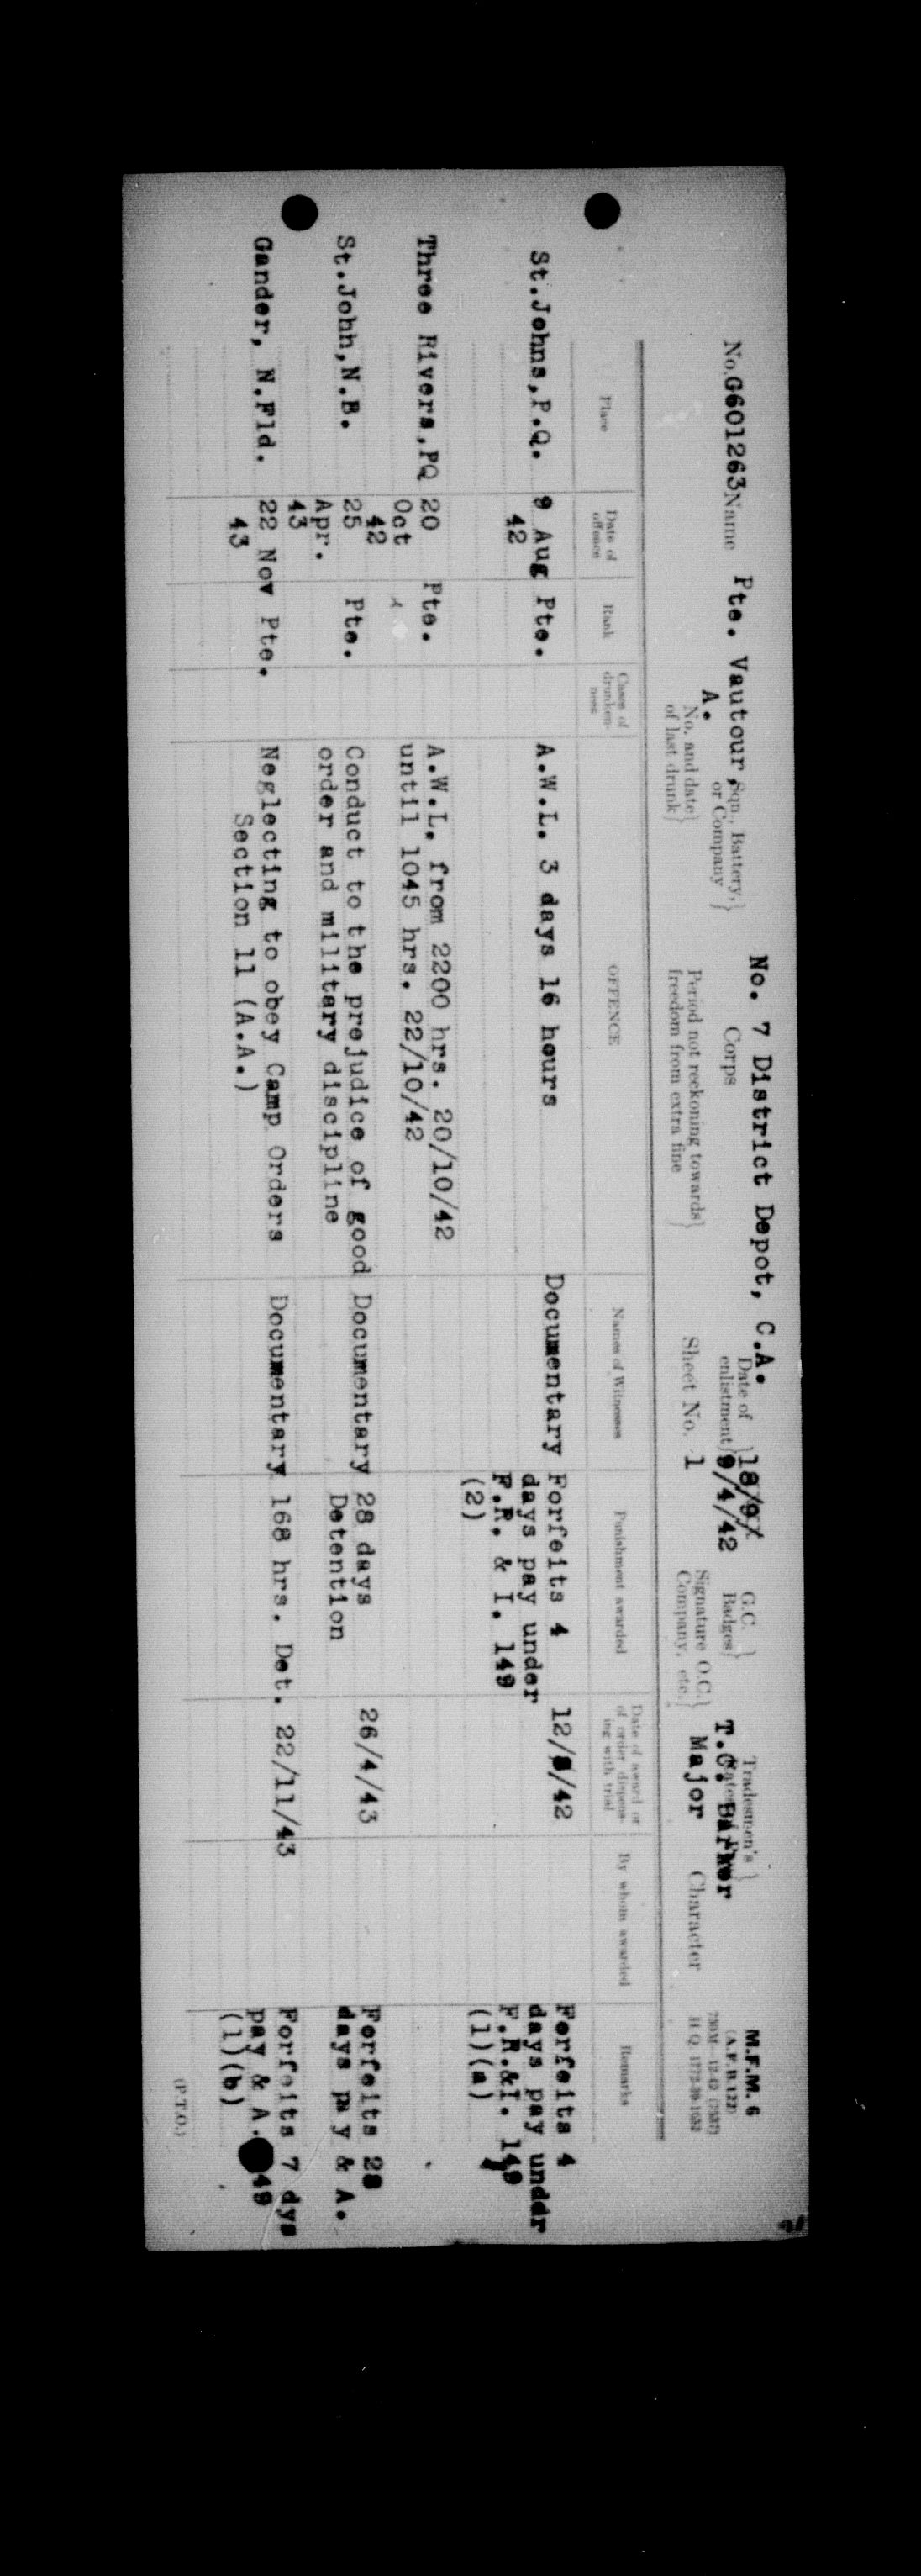 M.F.M. 6
(A.F.B.122)
No. G601263 Name Pte. Vautour, A. Sqn., Battery, or Company No. 7 District Depot, C.A. Corps Date of enlistment 9/4/42 G.C. Badges Tradesmen's
No. and date of last drunk Period not reckoning towards freedom from extra fine Sheet No. 1 Signature O.C. Company, etc. T.C. Barker Major Character
Place Date of offence Rank Cases of drunkenness OFFENCE Names of Witnesses Punishment awarded Date of award or of order dispensing with trial By whom awarded Remarks
St.Johns,P.Q. 9 Aug Pte. A.W.L. 3 days 16 hours Documentary Forfeits 4 12/8/42 Forfeits 4
42 days pay under days pay unddr
F.R. & I. 149 F.R.&I. 149
(2) (1)(a)
Three Rivers,PQ 20 Pte. A.W.L. from 2200 hrs. 20/10/42
Oct until 1045 hrs. 22/10/42
42
St.John,N.B. 25 Pte. Conduct to the prejudice of good Documentary 28 days 26/4/43 Forfeits 28
Apr. order and military discipline Detention days pay & A.
43
Gander, N.Fld. 22 Nov Pte. Neglecting to obey Camp Orders Documentary 168 hrs. Det. 22/11/43 Forfeits 7 dys
43 Section 11 (A.A.) pay & A. 49
(1)(b)
(P.T.O.)